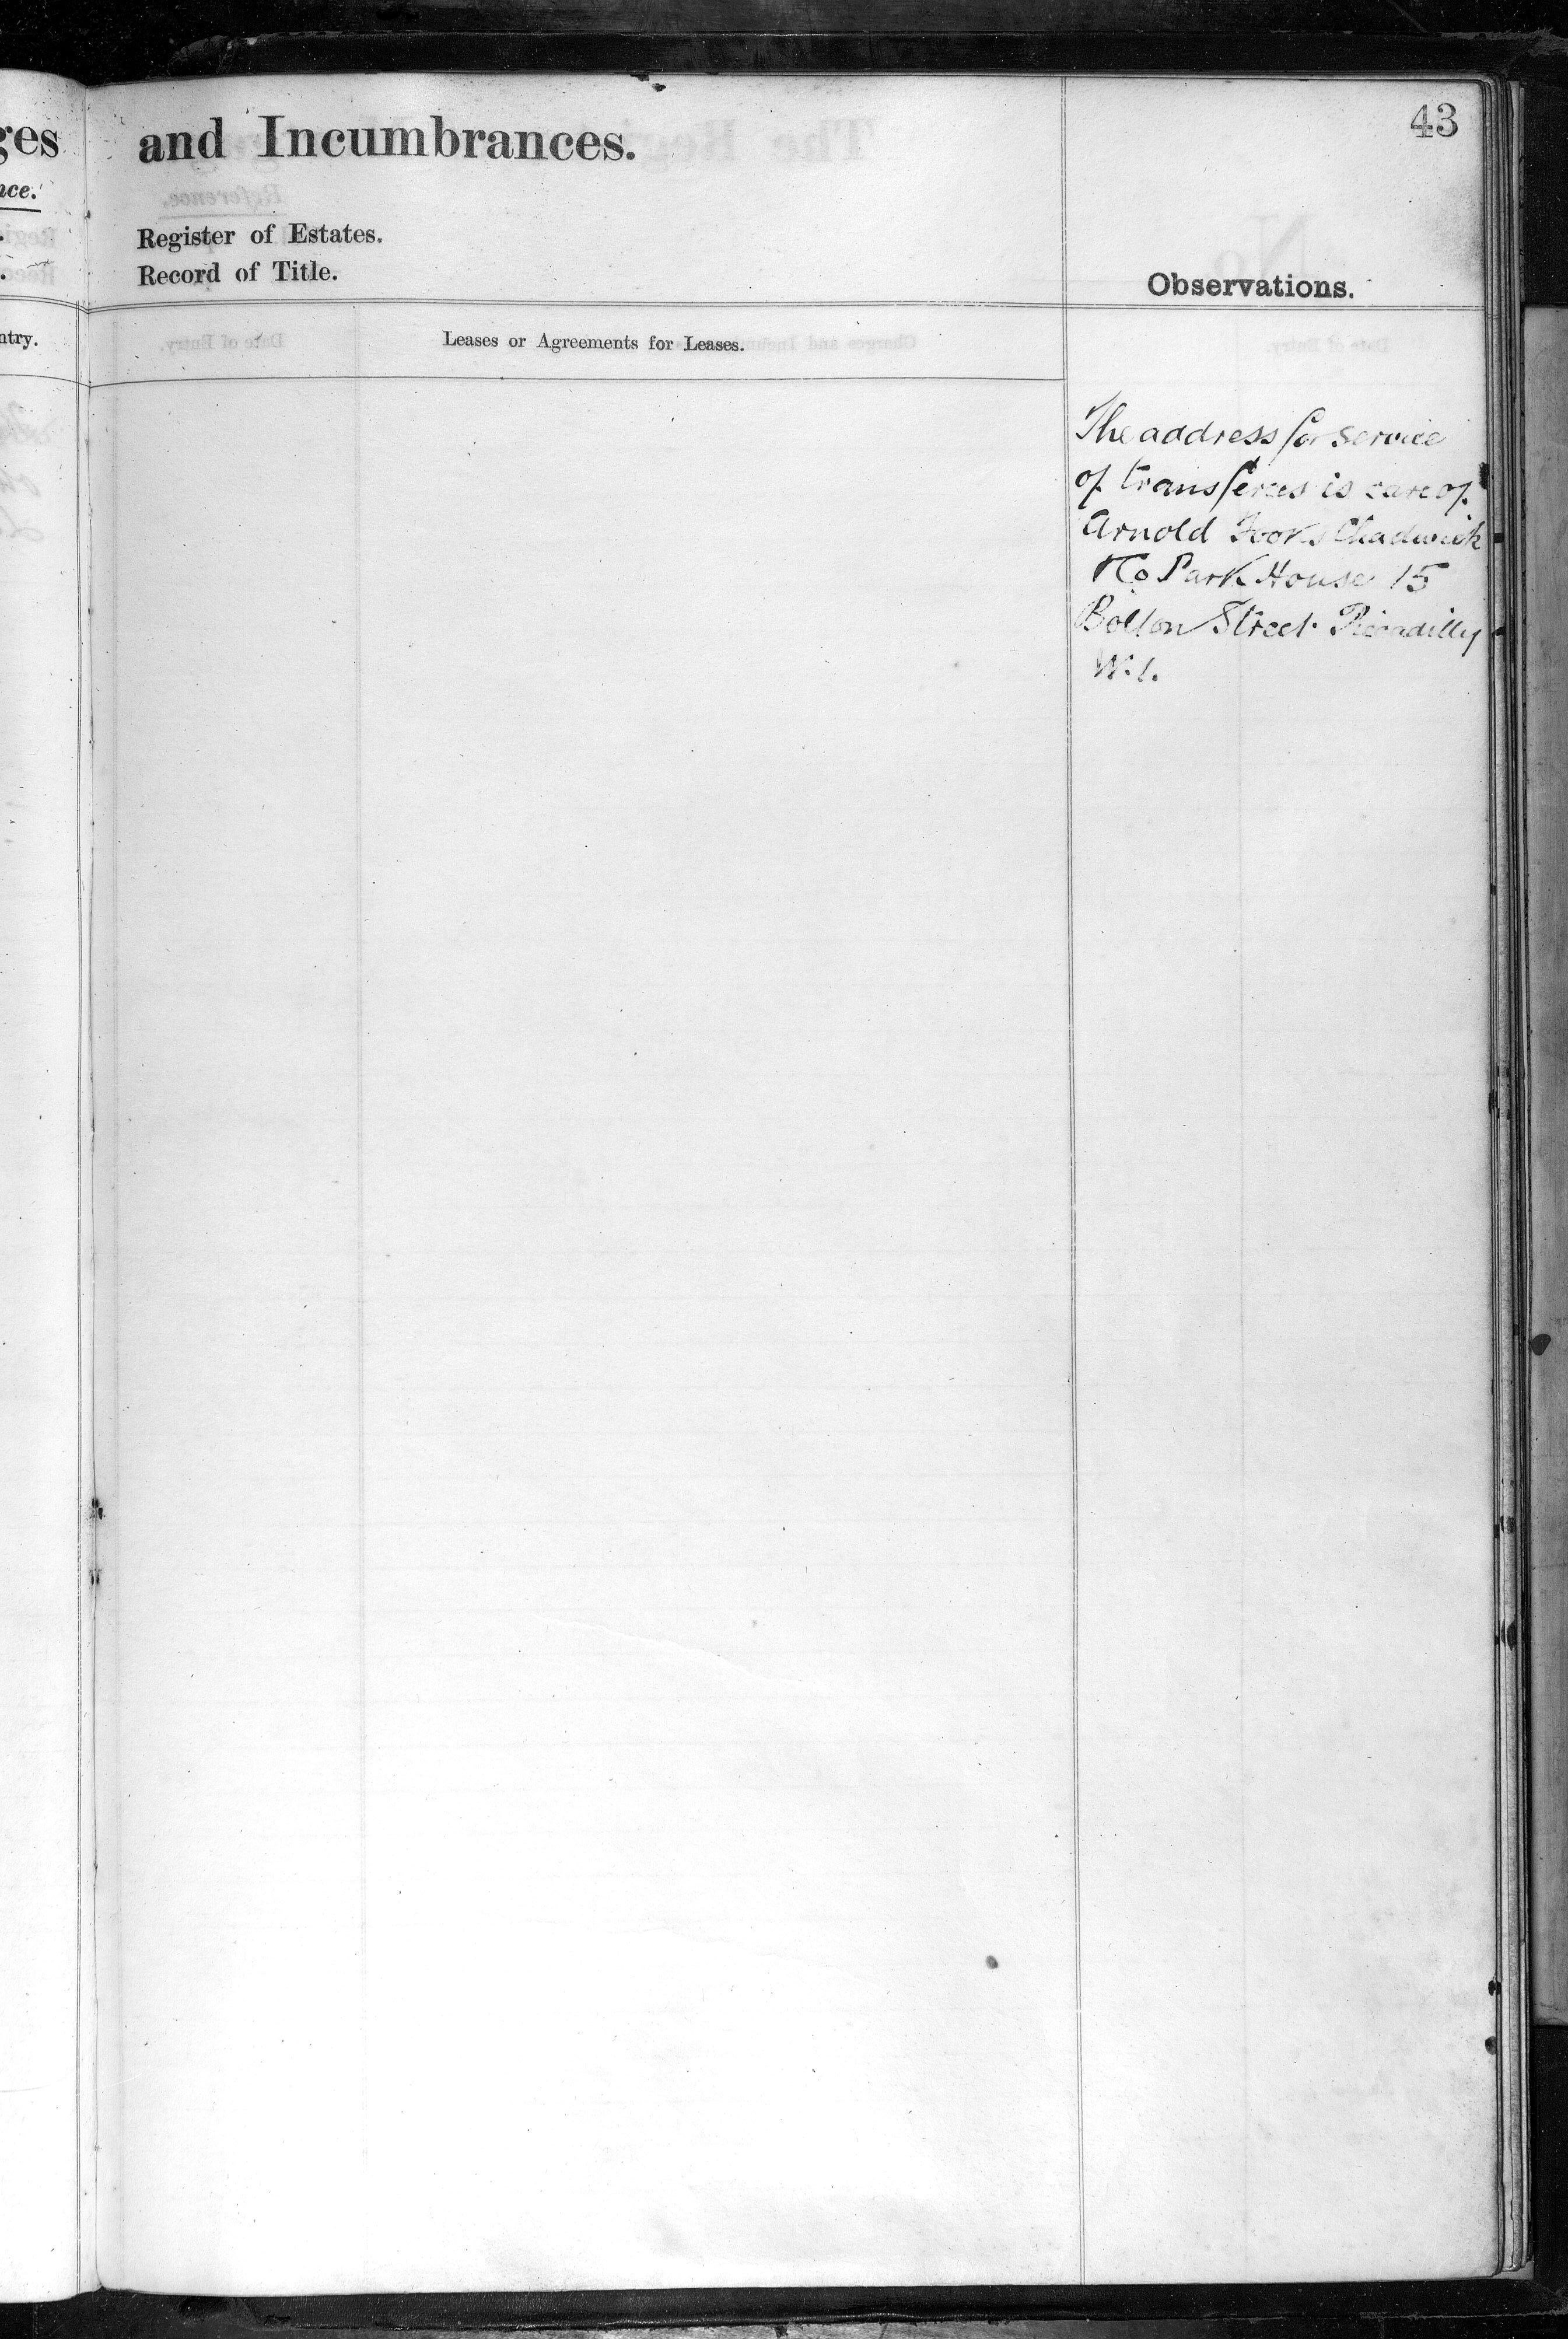 43
ges and Incumbrances.
nce.
Register of Estates.
Record of Title.
Observations.
ntry.
Leases or Agreements for Leases.
The address for service
of transferees is care of
Arnold Fooks Chadwick
& Co Park House 15
Bolton Street Piccadilly
W.1.